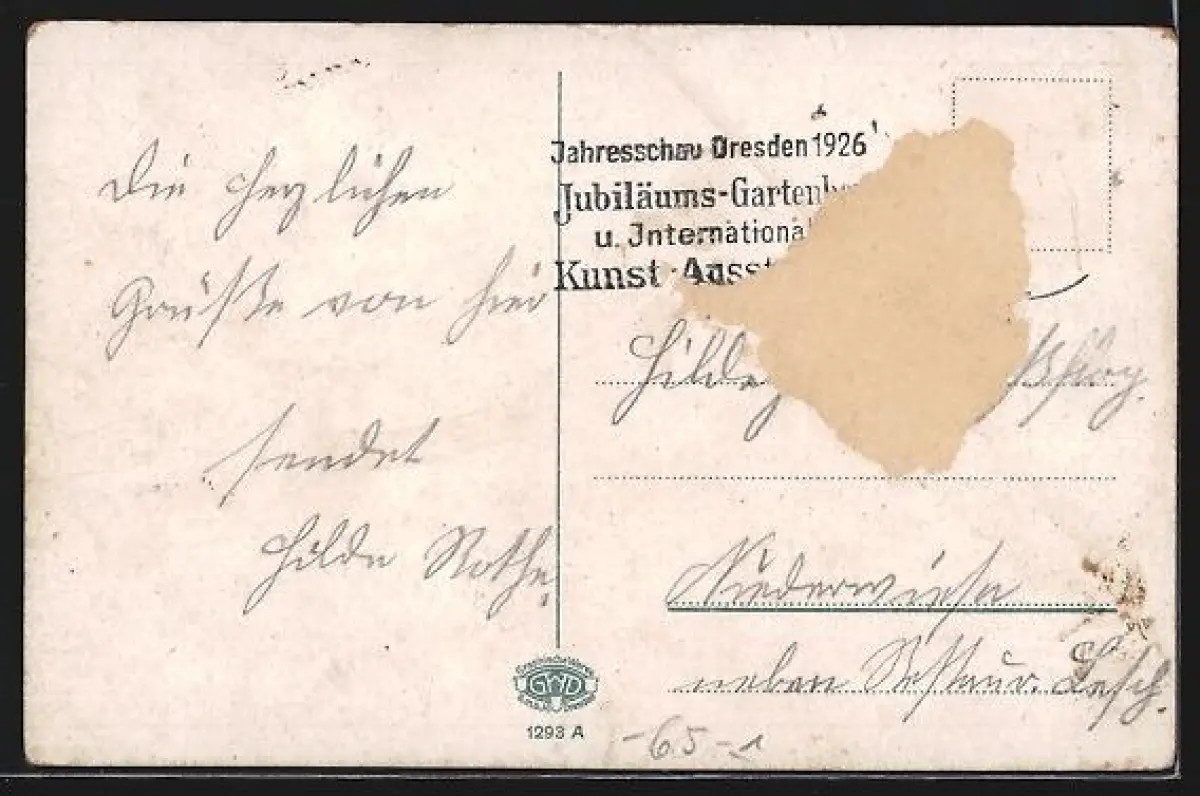 Die herzlichen
Grüße von hier
sendet
Hilde Rothe.
Jahresschau Dresden 1926
Jubiläums-Gartenb
u. Internationa
Kunst-Ausst
Hildeg
Niederwiesa
neben Restaur.
GWD
1293 A
-65-1